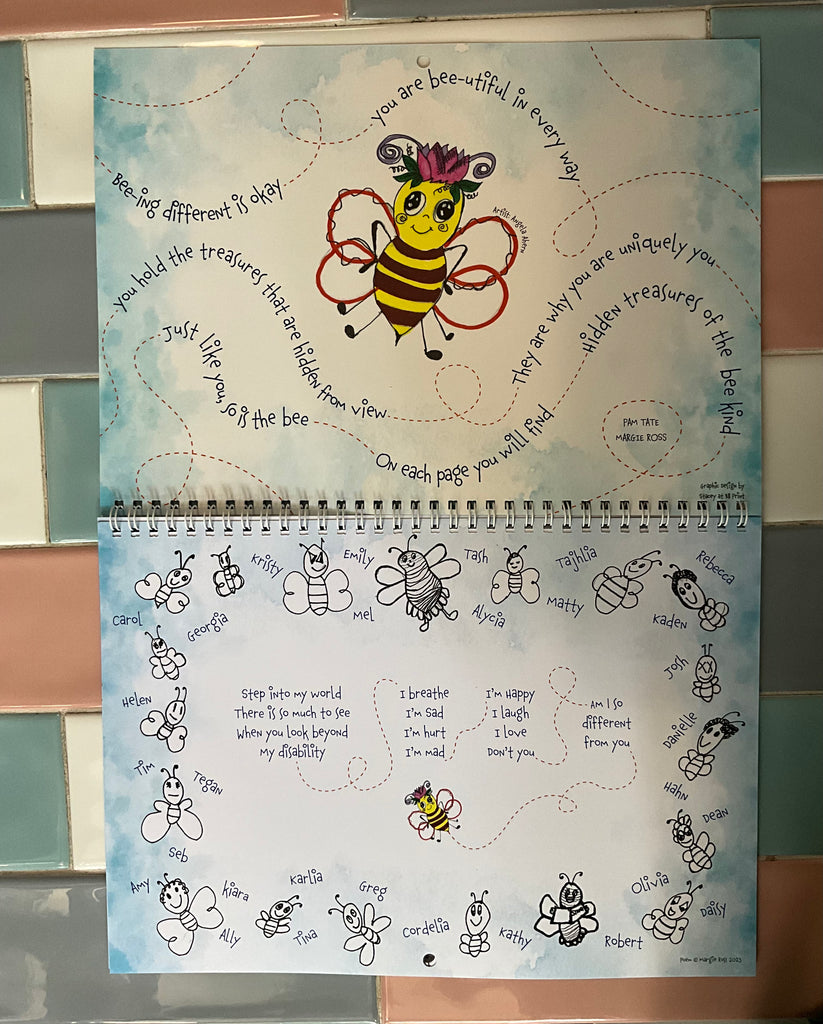 you are bee-utiful in every way
Bee-ing different is okay
Artist: Angela Ahern
you hold the treasures that are hidden from view
They are why you are uniquely you
Just like you, so is the bee
Hidden treasures of the bee kind
On each page you will find
PAM TATE
MARGIE ROSS
Graphic Design by
Stacey at NB Print
Carol
Georgia
Kristy
Emily
Mel
Tash
Alycia
Tajhlia
Matty
Rebecca
Kaden
Josh
Helen
Danielle
Tim
Tegan
Hahn
Dean
Seb
Step into my world
There is so much to see
When you look beyond
My disability
I breathe
I'm sad
I'm hurt
I'm mad
I'm happy
I laugh
I love
Don't you
Am I so
different
from you
Amy
Kiara
Ally
Karlia
Tina
Greg
Cordelia
Kathy
Robert
Olivia
Daisy
Poem © Margie Ross 2023